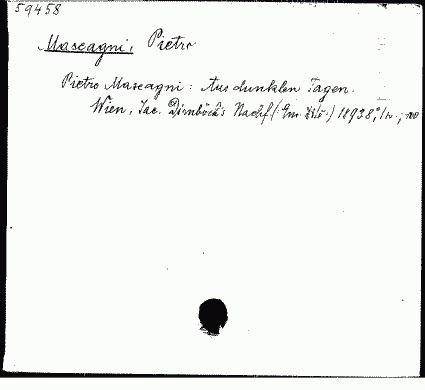 59458
Mascagni, Pietro
Pietro Mascagni: Aus dunklen Tagen.
Wien, Jac. Dirnböck's Nachf. (: Em. ) 1893 8°,